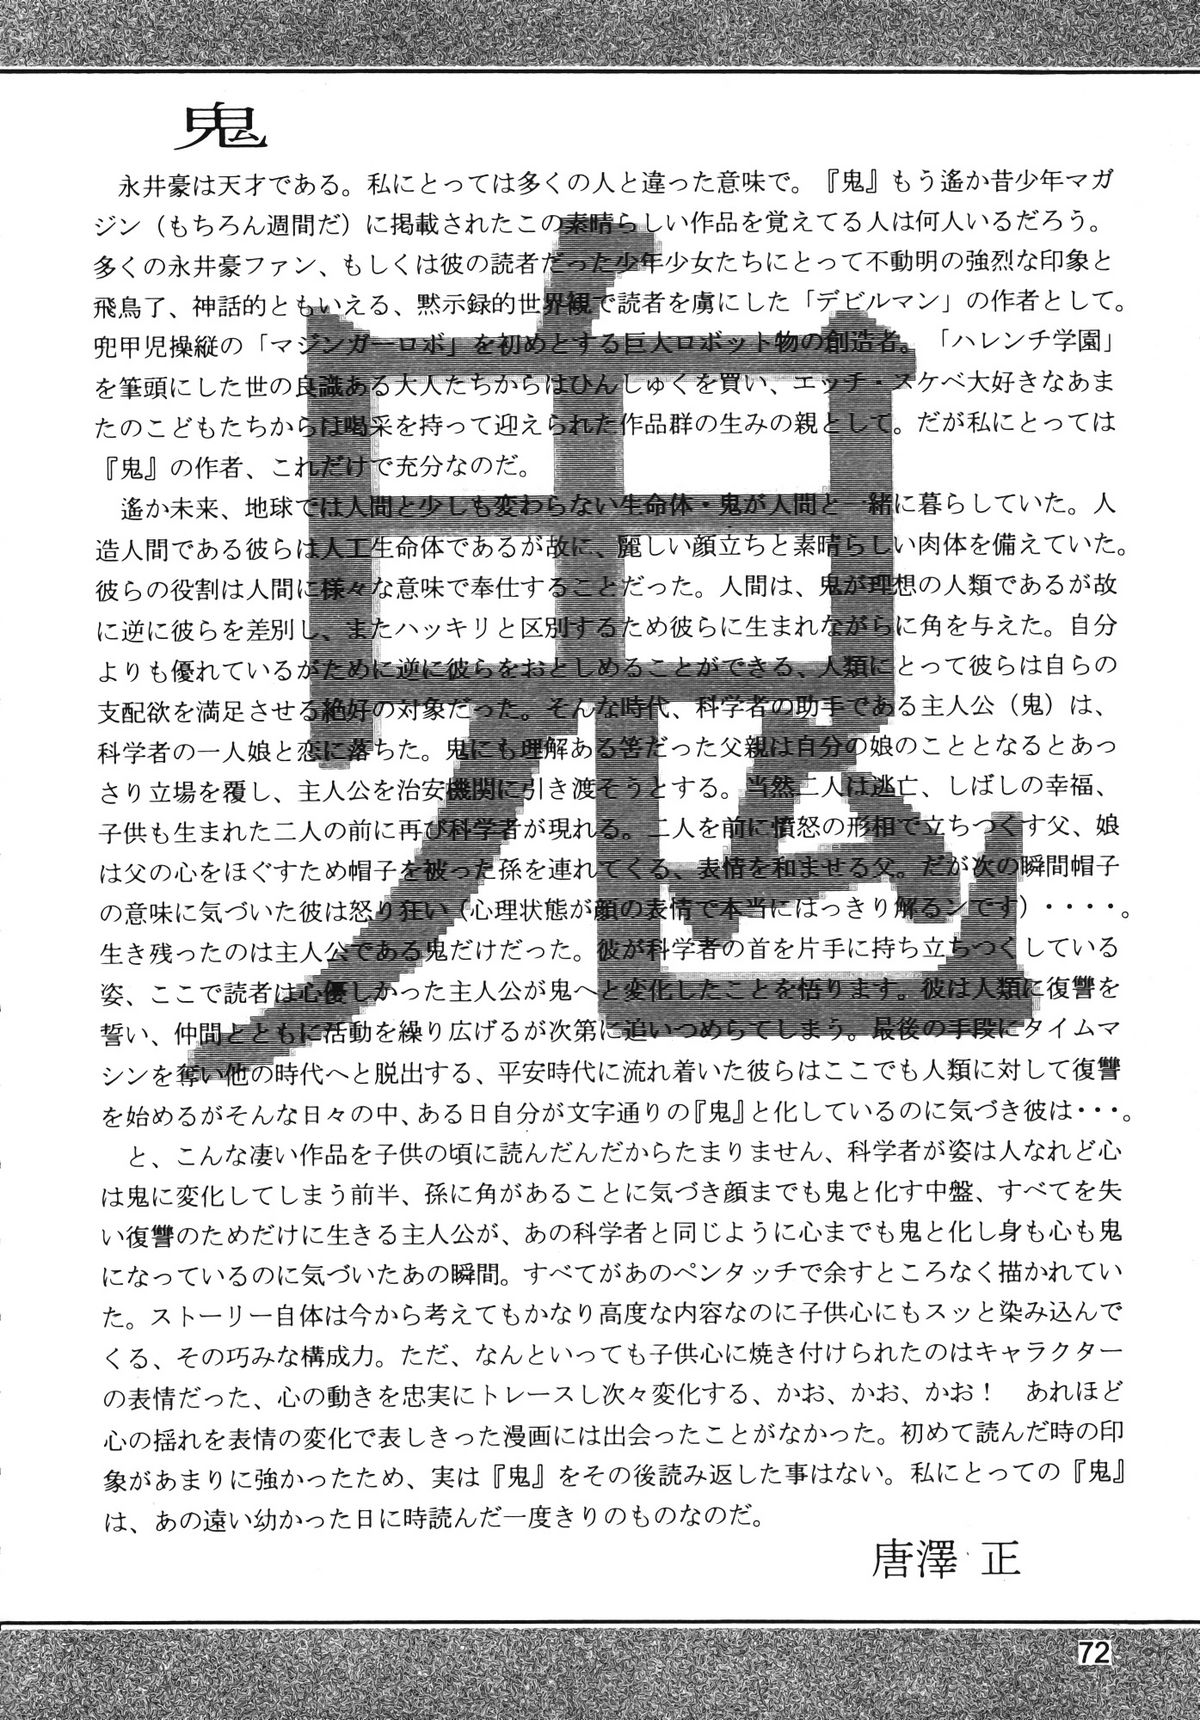 鬼
永井豪は天才である。私にとっては多くの人と違った意味で。『鬼』もう遙か昔少年マガ
ジン（もちろん週間だ）に掲載されたこの素晴らしい作品を覚えてる人は何人いるだろう。
多くの永井豪ファン、もしくは彼の読者だった少年少女たちにとって不動明の強烈な印象と
飛鳥了、神話的ともいえる、黙示録的世界観で読者を虜にした「デビルマン」の作者として。
兜甲児操縦の「マジンガーロボ」を初めとする巨人ロボット物の創造者。「ハレンチ学園」
を筆頭にした世の良識ある大人たちからはひんしゅくを買い、エッチ・スケベ大好きなあま
たのこどもたちからは喝采を持って迎えられた作品群の生みの親として。だが私にとっては
『鬼』の作者、これだけで充分なのだ。
遙か未来、地球では人間と少しも変わらない生命体・鬼が人間と一緒に暮らしていた。人
造人間である彼らは人工生命体であるが故に、麗しい顔立ちと素晴らしい肉体を備えていた。
彼らの役割は人間に様々な意味で奉仕することだった。人間は、鬼が理想の人類であるが故
に逆に彼らを差別し、またハッキリと区別するため彼らに生まれながらに角を与えた。自分
よりも優れているがために逆に彼らをおとしめることができる、人類にとって彼らは自らの
支配欲を満足させる絶好の対象だった。そんな時代、科学者の助手である主人公（鬼）は、
科学者の一人娘と恋に落ちた。鬼にも理解ある筈だった父親は自分の娘のこととなるとあっ
さり立場を覆し、主人公を治安機関に引き渡そうとする。当然二人は逃亡、しばしの幸福、
子供も生まれた二人の前に再び科学者が現れる。二人を前に憤怒の形相で立ちつくす父、娘
は父の心をほぐすため帽子を被った孫を連れてくる、表情を和ませる父。だが次の瞬間帽子
の意味に気づいた彼は怒り狂い（心理状態が顔の表情で本当にはっきり解るンです）・・・・。
生き残ったのは主人公である鬼だけだった。彼が科学者の首を片手に持ち立ちつくしている
姿、ここで読者は心優しかった主人公が鬼へと変化したことを悟ります。彼は人類に復讐を
誓い、仲間とともに活動を繰り広げるが次第に追いつめらてしまう。最後の手段にタイムマ
シンを奪い他の時代へと脱出する、平安時代に流れ着いた彼らはここでも人類に対して復讐
を始めるがそんな日々の中、ある日自分が文字通りの『鬼』と化しているのに気づき彼は・・・。
と、こんな凄い作品を子供の頃に読んだんだからたまりません、科学者が姿は人なれど心
は鬼に変化してしまう前半、孫に角があることに気づき顔までも鬼と化す中盤、すべてを失
い復讐のためだけに生きる主人公が、あの科学者と同じように心までも鬼と化し身も心も鬼
になっているのに気づいたあの瞬間。すべてがあのペンタッチで余すところなく描かれてい
た。ストーリー自体は今から考えてもかなり高度な内容なのに子供心にもスッと染み込んで
くる、その巧みな構成力。ただ、なんといっても子供心に焼き付けられたのはキャラクター
の表情だった、心の動きを忠実にトレースし次々変化する、かお、かお、かお！　あれほど
心の揺れを表情の変化で表しきった漫画には出会ったことがなかった。初めて読んだ時の印
象があまりに強かったため、実は『鬼』をその後読み返した事はない。私にとっての『鬼』
は、あの遠い幼かった日に時読んだ一度きりのものなのだ。
唐澤 正
72